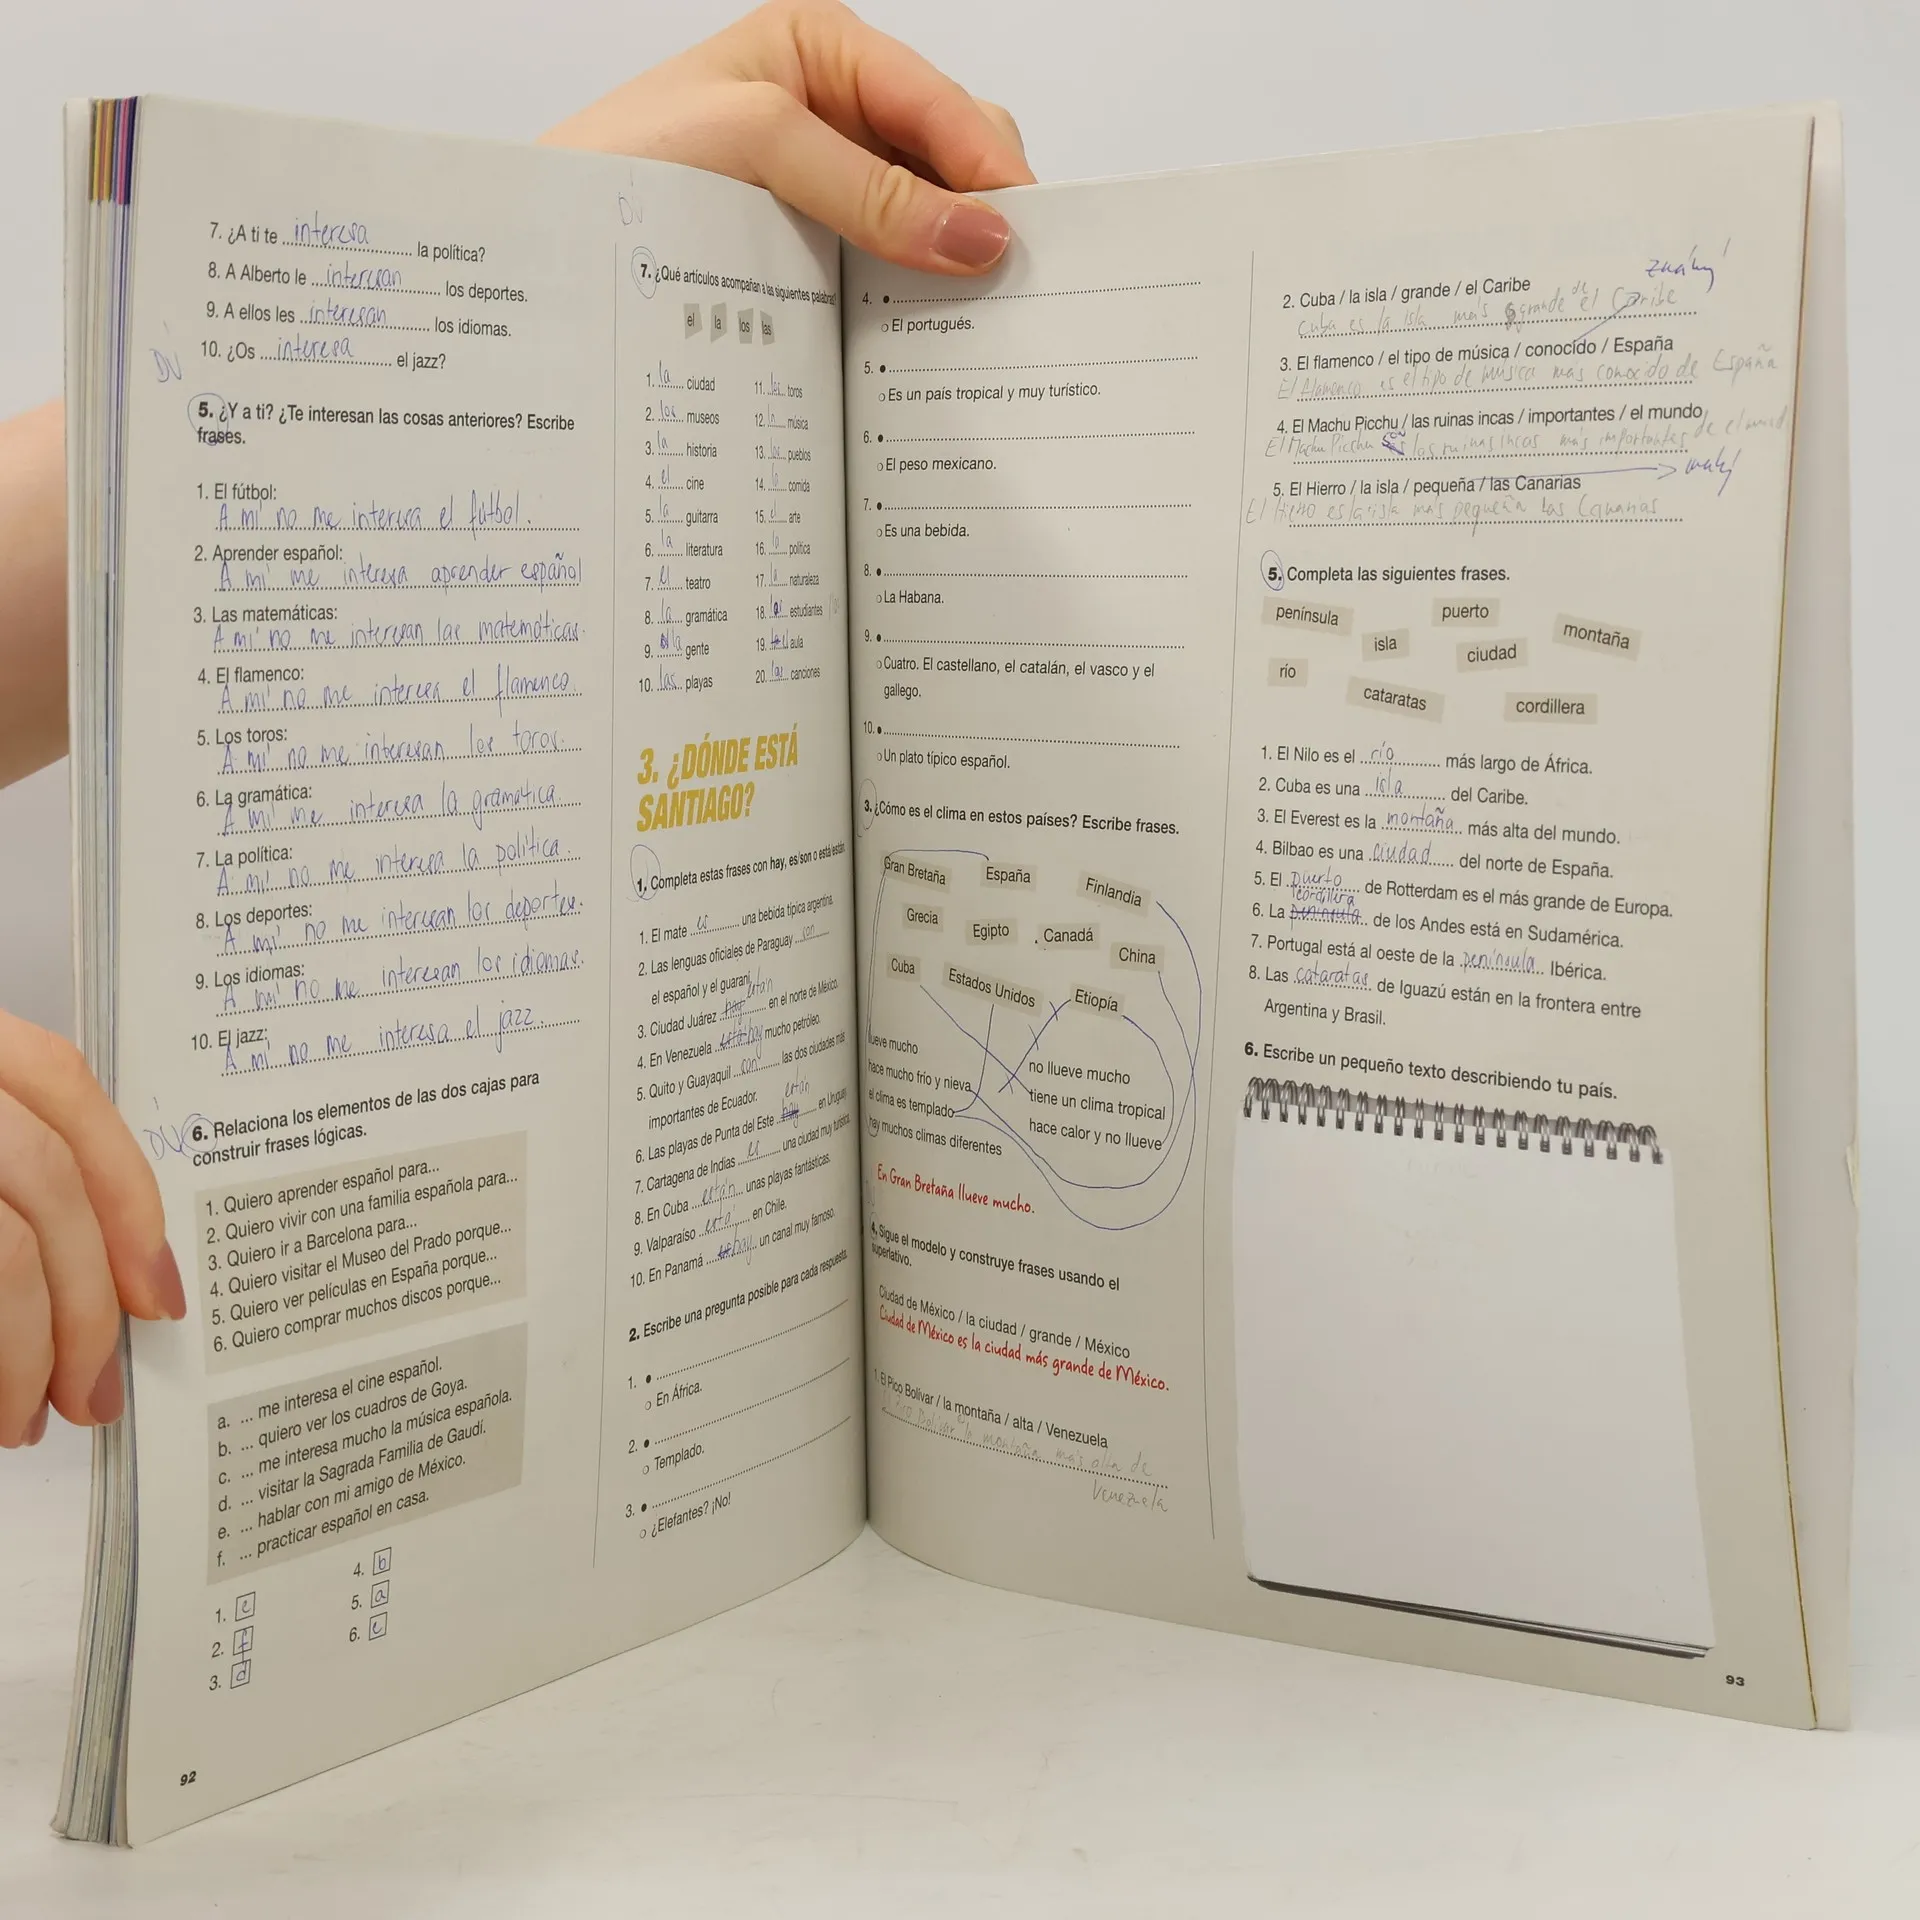 7. ¿A ti te interesa la política?
8. A Alberto le interesan los deportes.
9. A ellos les interesan los idiomas.
10. ¿Os interesa el jazz?
DÚ
5. ¿Y a ti? ¿Te interesan las cosas anteriores? Escribe
frases.
1. El fútbol:
A mí no me interesa el fútbol.
2. Aprender español:
A mí me interesa aprender español
3. Las matemáticas:
A mí no me interesan las matemáticas.
4. El flamenco:
A mí no me interesa el flamenco.
5. Los toros:
A mí no me interesan los toros.
6. La gramática:
A mí me interesa la gramática.
7. La política:
A mí no me interesa la política.
8. Los deportes:
A mí no me interesan los deportes.
9. Los idiomas:
A mí no me interesan los idiomas.
10. El jazz:
A mí no me interesa el jazz.
DÚ
6. Relaciona los elementos de las dos cajas para
construir frases lógicas.
1. Quiero aprender español para...
2. Quiero vivir con una familia española para...
3. Quiero ir a Barcelona para...
4. Quiero visitar el Museo del Prado porque...
5. Quiero ver películas en España porque...
6. Quiero comprar muchos discos porque...
a. ... me interesa el cine español.
b. ... quiero ver los cuadros de Goya.
c. ... me interesa mucho la música española.
d. ... visitar la Sagrada Familia de Gaudí.
e. ... hablar con mi amigo de México.
f. ... practicar español en casa.
1. e
2. f
3. d
4. b
5. a
6. c
92
DÚ
7. ¿Qué artículos acompañan a las siguientes palabras?
el la los las
1. la ciudad
2. los museos
3. la historia
4. el cine
5. la guitarra
6. la literatura
7. el teatro
8. la gramática
9. la gente
10. las playas
11. los toros
12. la música
13. los pueblos
14. la comida
15. el arte
16. la política
17. la naturaleza
18. los estudiantes
19. el aula
20. las canciones
3. ¿DÓNDE ESTÁ
SANTIAGO?
1. Completa estas frases con hay, es/son o está/están
1. El mate es una bebida típica argentina.
2. Las lenguas oficiales de Paraguay son
el español y el guaraní.
3. Ciudad Juárez hay están en el norte de México.
4. En Venezuela está hay mucho petróleo.
5. Quito y Guayaquil son las dos ciudades más
importantes de Ecuador.
6. Las playas de Punta del Este hay están en Uruguay.
7. Cartagena de Indias es una ciudad muy turística.
8. En Cuba están unas playas fantásticas.
9. Valparaíso está en Chile.
10. En Panamá hay un canal muy famoso.
2. Escribe una pregunta posible para cada respuesta.
1.
En África.
2.
Templado.
3.
¿Elefantes? ¡No!
4.
El portugués.
5.
Es un país tropical y muy turístico.
6.
El peso mexicano.
7.
Es una bebida.
8.
La Habana.
9.
Cuatro. El castellano, el catalán, el vasco y el
gallego.
10.
Un plato típico español.
3. ¿Cómo es el clima en estos países? Escribe frases.
Gran Bretaña España Finlandia
Grecia Egipto Canadá China
Cuba Estados Unidos Etiopía
llueve mucho
hace mucho frío y nieva
el clima es templado
hay muchos climas diferentes
no llueve mucho
tiene un clima tropical
hace calor y no llueve
En Gran Bretaña llueve mucho.
4. Sigue el modelo y construye frases usando el
superlativo.
Ciudad de México / la ciudad / grande / México
Ciudad de México es la ciudad más grande de México.
1. El Pico Bolívar / la montaña / alta / Venezuela
El Pico Bolívar la montaña más alta de
Venezuela
2. Cuba / la isla / grande / el Caribe
Cuba es la isla más grande de el Caribe
3. El flamenco / el tipo de música / conocido / España
El flamenco es el tipo de música más conocido de España
4. El Machu Picchu / las ruinas incas / importantes / el mundo
El Machu Picchu son las ruinas incas más importantes de el mund
5. El Hierro / la isla / pequeña / las Canarias
malý
El Hierro es la isla más pequeña las Canarias
5. Completa las siguientes frases.
península puerto montaña
isla ciudad
río cataratas cordillera
1. El Nilo es el río más largo de África.
2. Cuba es una isla del Caribe.
3. El Everest es la montaña más alta del mundo.
4. Bilbao es una ciudad del norte de España.
5. El puerto de Rotterdam es el más grande de Europa.
6. La península cordillera de los Andes está en Sudamérica.
7. Portugal está al oeste de la península Ibérica.
8. Las cataratas de Iguazú están en la frontera entre
Argentina y Brasil.
6. Escribe un pequeño texto describiendo tu país.
93